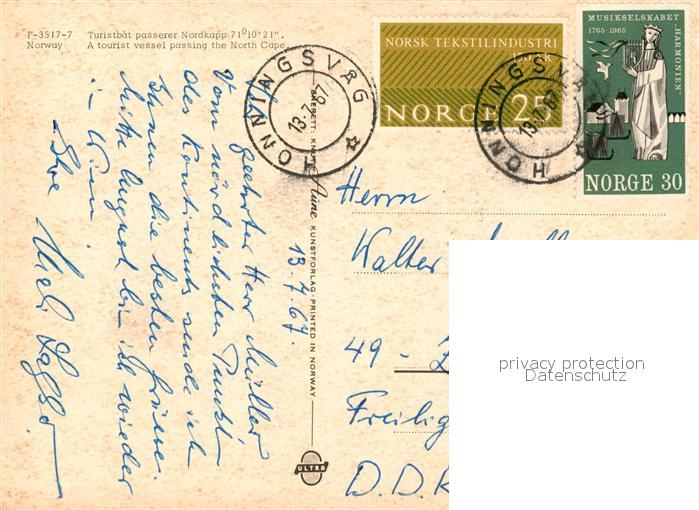 F-3517-7 Turistbåt passerer Nordkapp 71⁰10'21".
Norway A tourist vessel passing the North Cape.
13.7.67.
Sehr geehrter Herr Müller
Vom nördlichsten Punkt
des Kontinents sende ich
Ihnen die besten Grüsse.
Mitte August bin ich wieder
in Wien.
Ihre
ENERETT:
Aune KUNSTFORLAG · PRINTED IN NORWAY
ULTRA
HONNINGSVÅG
13.7.67
NORSK TEKSTILINDUSTRI
NORGE 25
HONNINGSVÅG
13.7.67
MUSIKSELSKABET
1765-1965 "HARMONIEN"
NORGE 30
Herrn
Walter
49 -
Freilig
D.D.R
privacy protection
Datenschutz